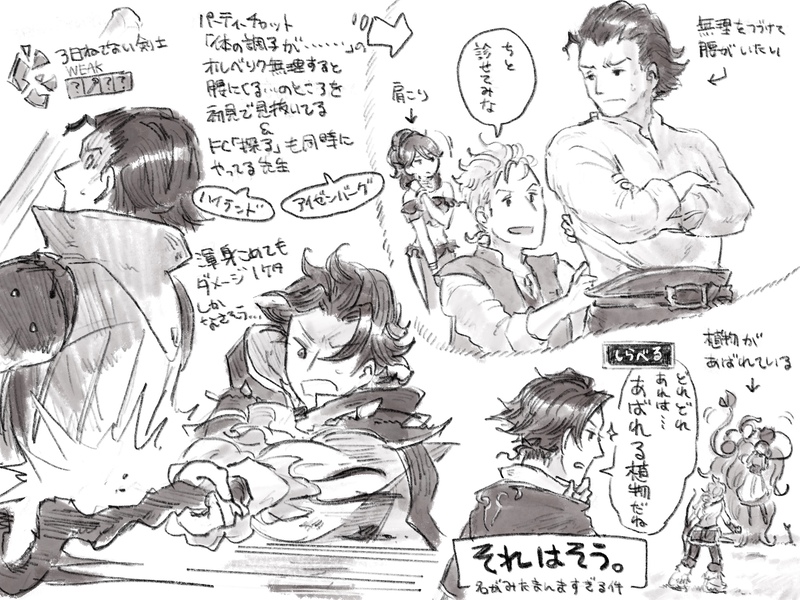 3日ねてない剣士
WEAK
? ? ? ?
パーティーチャット
「体の調子が……」の
オルベリク無理すると
腰にくる…のところを
初見で見抜いてる
&
FC「探る」も同時に
やってる先生
ハイランド
アイゼンバーグ
渾身こめても
ダメージ1ケタ
しか
なさそう…
肩こり
ちと
診せてみな
無理をつづけて
腰がいたい
しらべる
どれどれ
あれは…
あばれる植物だね
植物が
あばれている
それはそう。
名がみたまんますぎる件